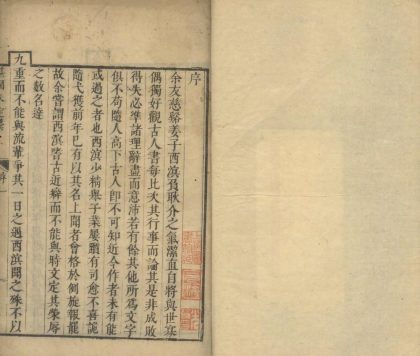 序
余友慈谿姜子西溟負耿介之氣潔直自將與世寡
偶獨好觀古人書每比次其行事而論其是非成敗
得失必準諸理辭盡而意沛若有餘其他所爲文字
俱不苟隨人高下古人卽不可知近今作者未有能
或過之者也西溟少精舉子業屢躓有司愈不喜詭
隨弋獲前年已有以其名上聞者會格於例旋報罷
故余嘗謂西溟嗜古近癖而不能與時文定其榮辱
之數名達
九重而不能與流輩爭其一日之遇西溟聞之殊不以